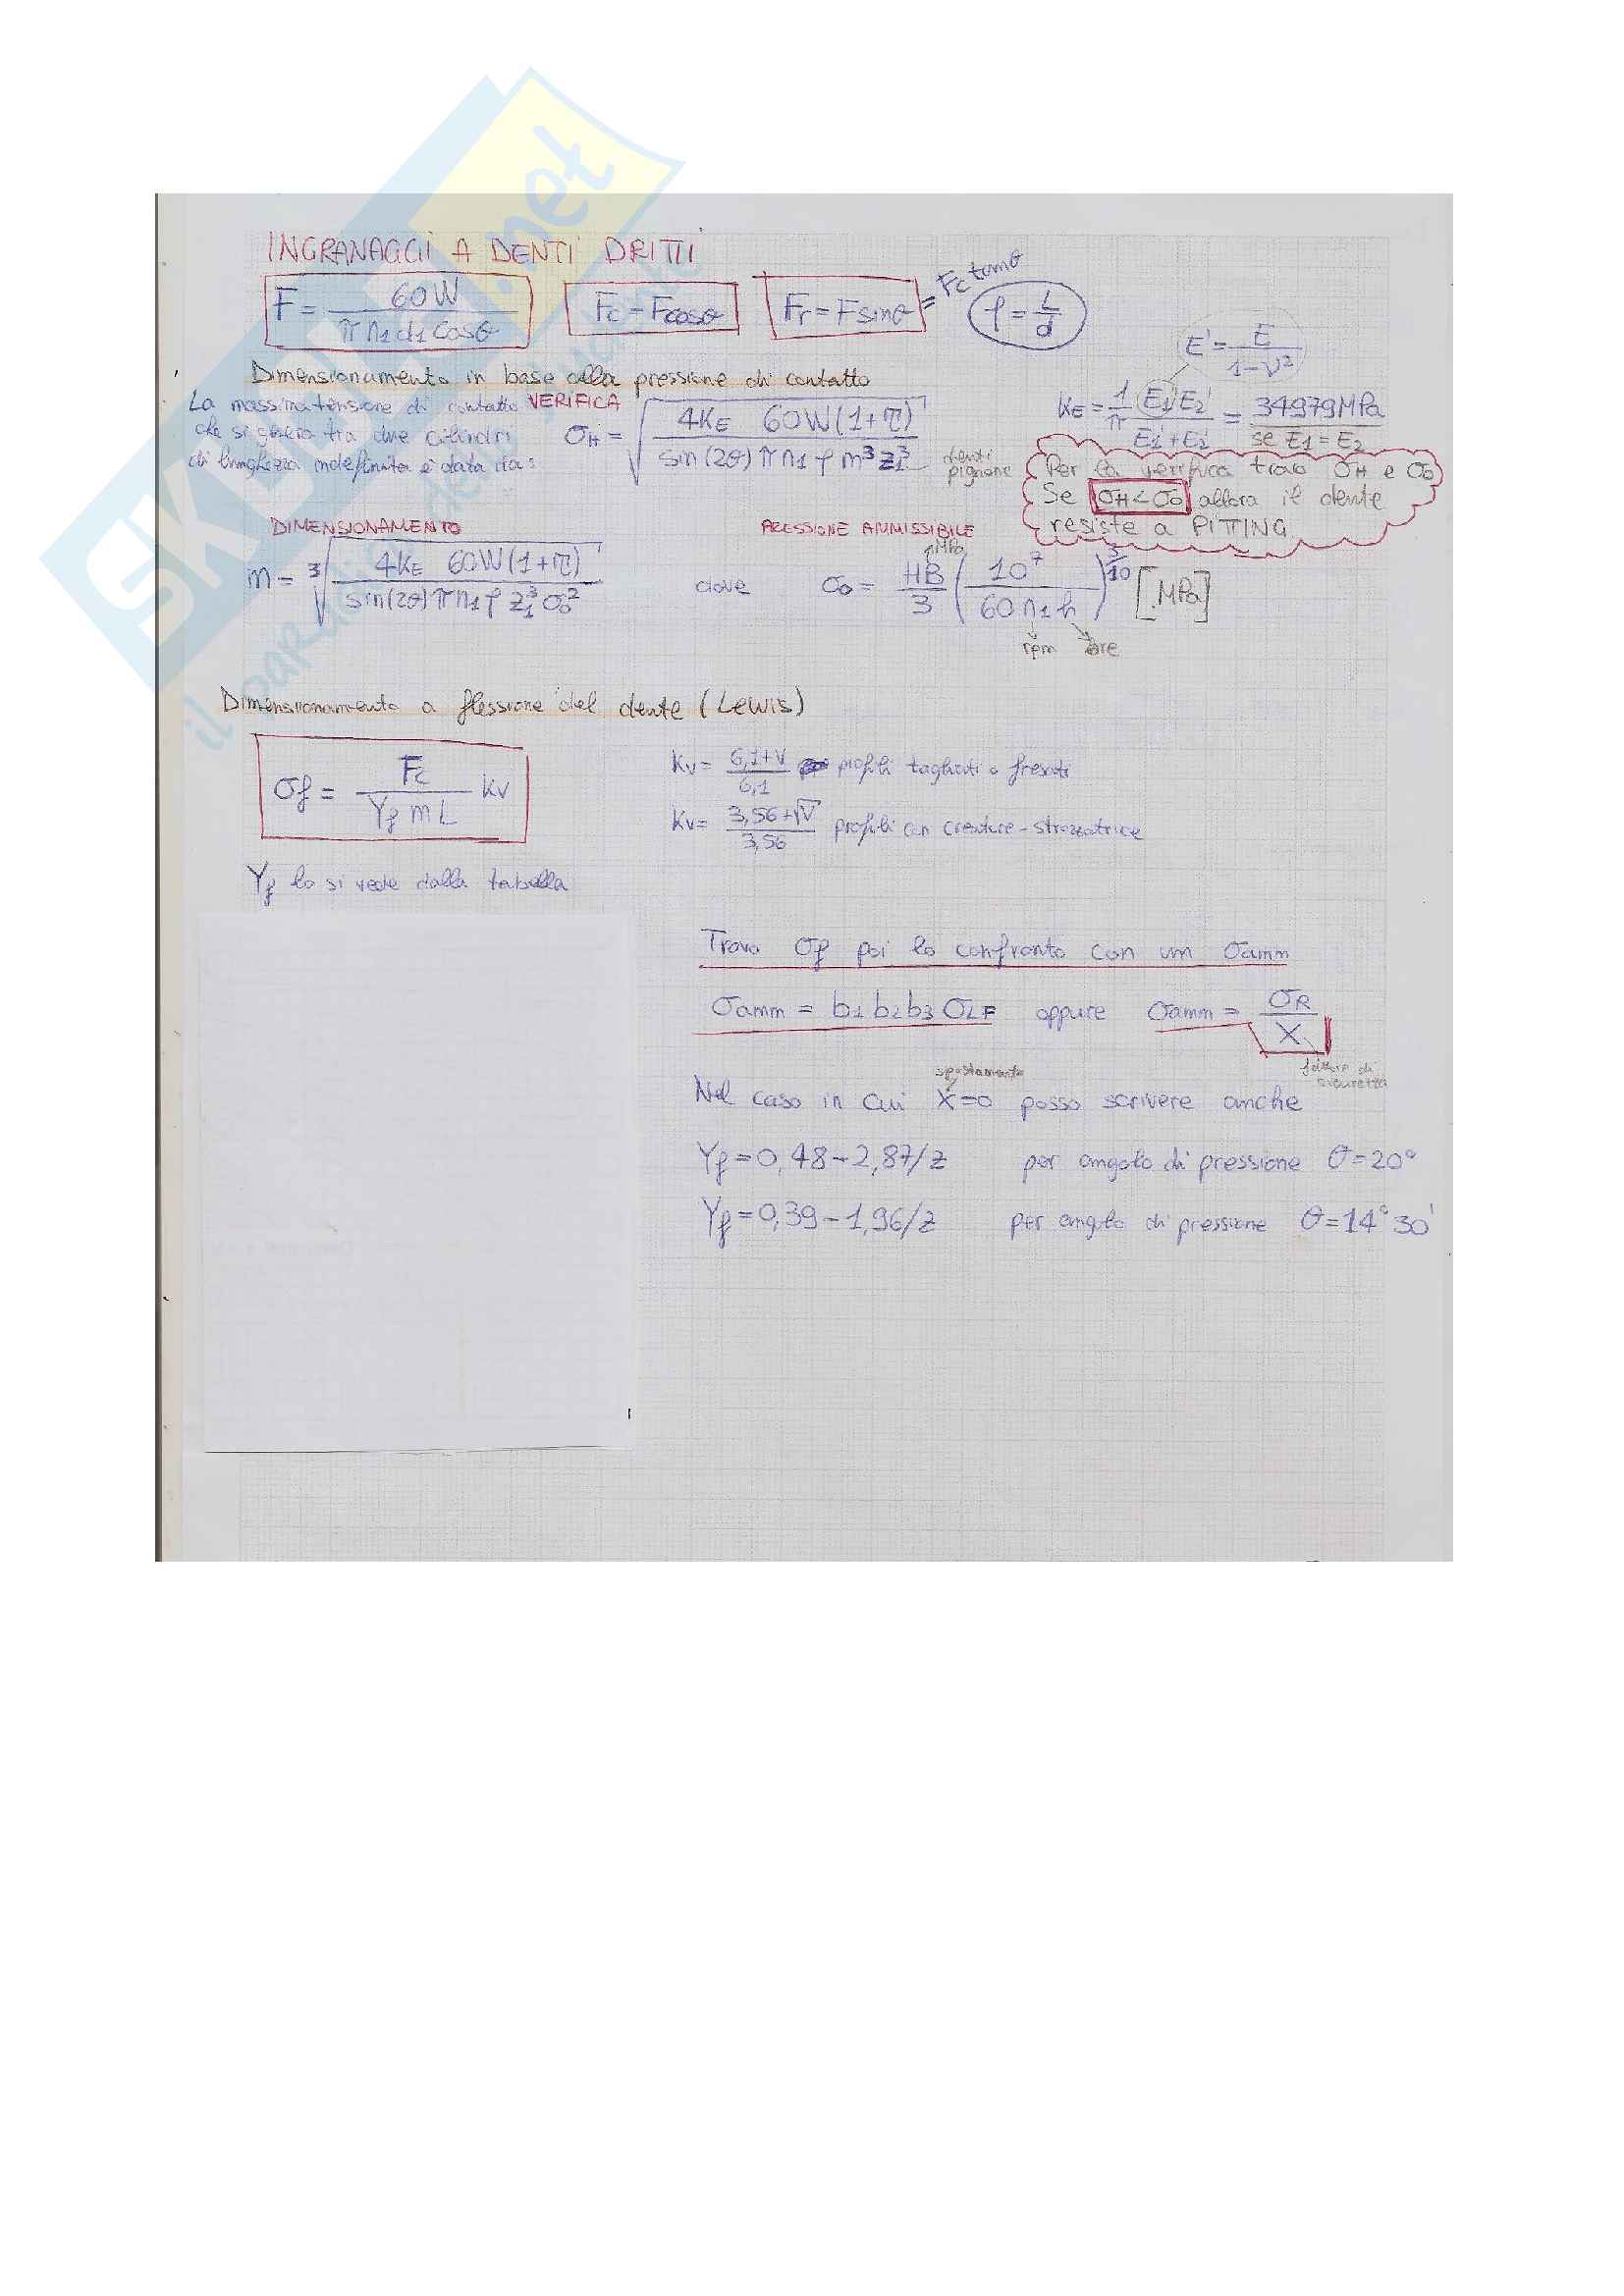 INGRANAGGI A DENTI DRITTI
F = 60W / (π n1 d1 cosθ)   Fc = Fcosθ   Fr = Fsinθ = Fc tanθ   φ = L/d
E' = E / (1-ν²)
Dimensionamento in base alla pressione di contatto
La massima tensione di contatto VERIFICA
che si genera tra due cilindri
di lunghezza indefinita è data da:
σH = √(4KE 60W(1+τ) / (sin(2θ) π n1 φ m³ z1³))   denti pignone
KE = 1/π E1'E2' / (E1'+E2') = 34979MPa se E1=E2
Per la verifica trovo σH e σ0
Se σH<σ0 allora il dente
resiste a PITTING
DIMENSIONAMENTO   PRESSIONE AMMISSIBILE
m = ³√(4KE 60W(1+τ) / (sin(2θ) π n1 φ z1³ σ0²))   dove   σ0 = HB/3 (10⁷ / (60 n1 h))^(3/10) [MPa]
MPa
rpm   ore
Dimensionamento a flessione del dente (Lewis)
σf = Fc / (Yf m L) Kv
Kv = (6,1+V) / 6,1 profili tagliati o fresati
Kv = (3,56+√V) / 3,56 profili con creatore-strozzatrice
Yf lo si vede dalla tabella
Trovo σf poi lo confronto con un σamm
σamm = b1 b2 b3 σLF oppure σamm = σR / X
fattore di sicurezza
spostamento
Nel caso in cui X=0 posso scrivere anche
Yf = 0,48-2,87/z   per angolo di pressione θ=20°
Yf = 0,39-1,96/z   per angolo di pressione θ=14°30'
.net